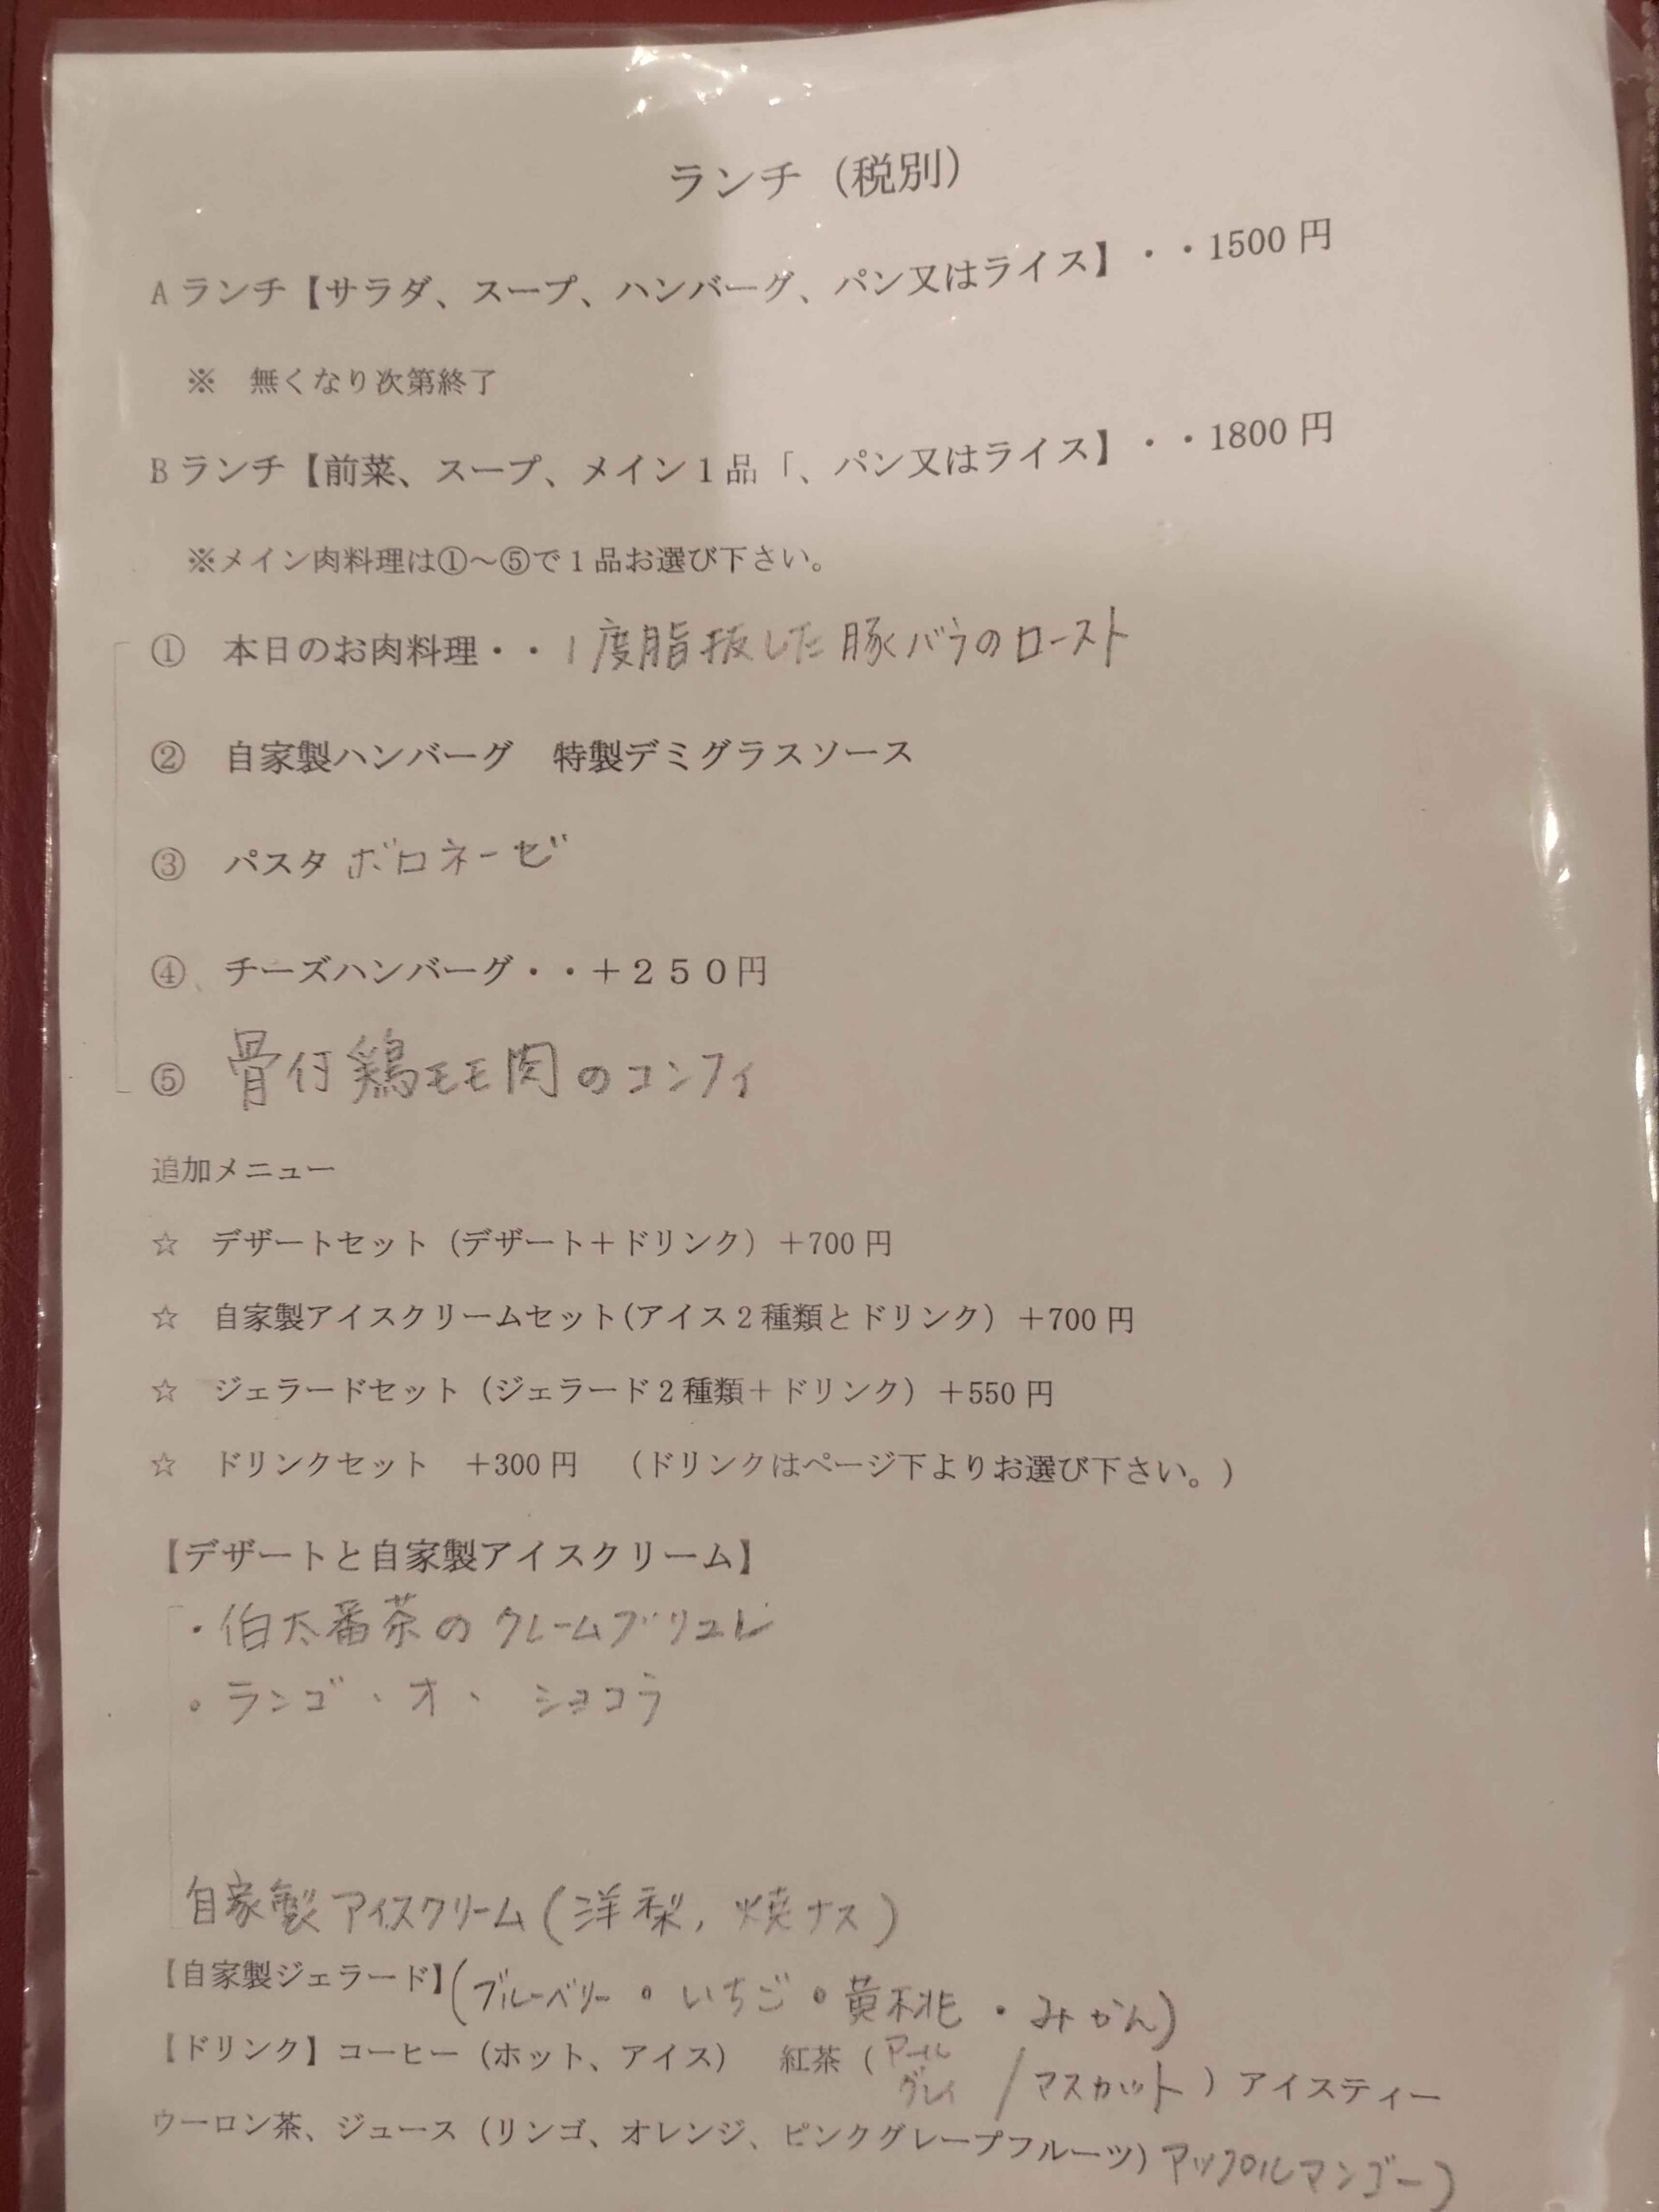 ランチ（税別）
Aランチ【サラダ、スープ、ハンバーグ、パン又はライス】・・1500円
※　無くなり次第終了
Bランチ【前菜、スープ、メイン１品「、パン又はライス】・・1800円
※メイン肉料理は①～⑤で１品お選び下さい。
①　本日のお肉料理・・1度脂抜した豚バラのロースト
②　自家製ハンバーグ　特製デミグラスソース
③　パスタ ボロネーゼ
④　チーズハンバーグ・・＋２５０円
⑤　骨付鶏モモ肉のコンフィ
追加メニュー
☆　デザートセット（デザート＋ドリンク）＋700円
☆　自家製アイスクリームセット(アイス２種類とドリンク）＋700円
☆　ジェラードセット（ジェラード２種類＋ドリンク）＋550円
☆　ドリンクセット　＋300円　（ドリンクはページ下よりお選び下さい。）
【デザートと自家製アイスクリーム】
・伯太番茶のクレームブリュレ
・ランゴ・オ・ショコラ
自家製アイスクリーム(洋梨, 焼ナス)
【自家製ジェラード】(ブルーベリー・いちご・黄桃・みかん)
【ドリンク】コーヒー（ホット、アイス）　紅茶（アールグレイ/マスカット）アイスティー
ウーロン茶、ジュース（リンゴ、オレンジ、ピンクグレープフルーツ）アップルマンゴー)